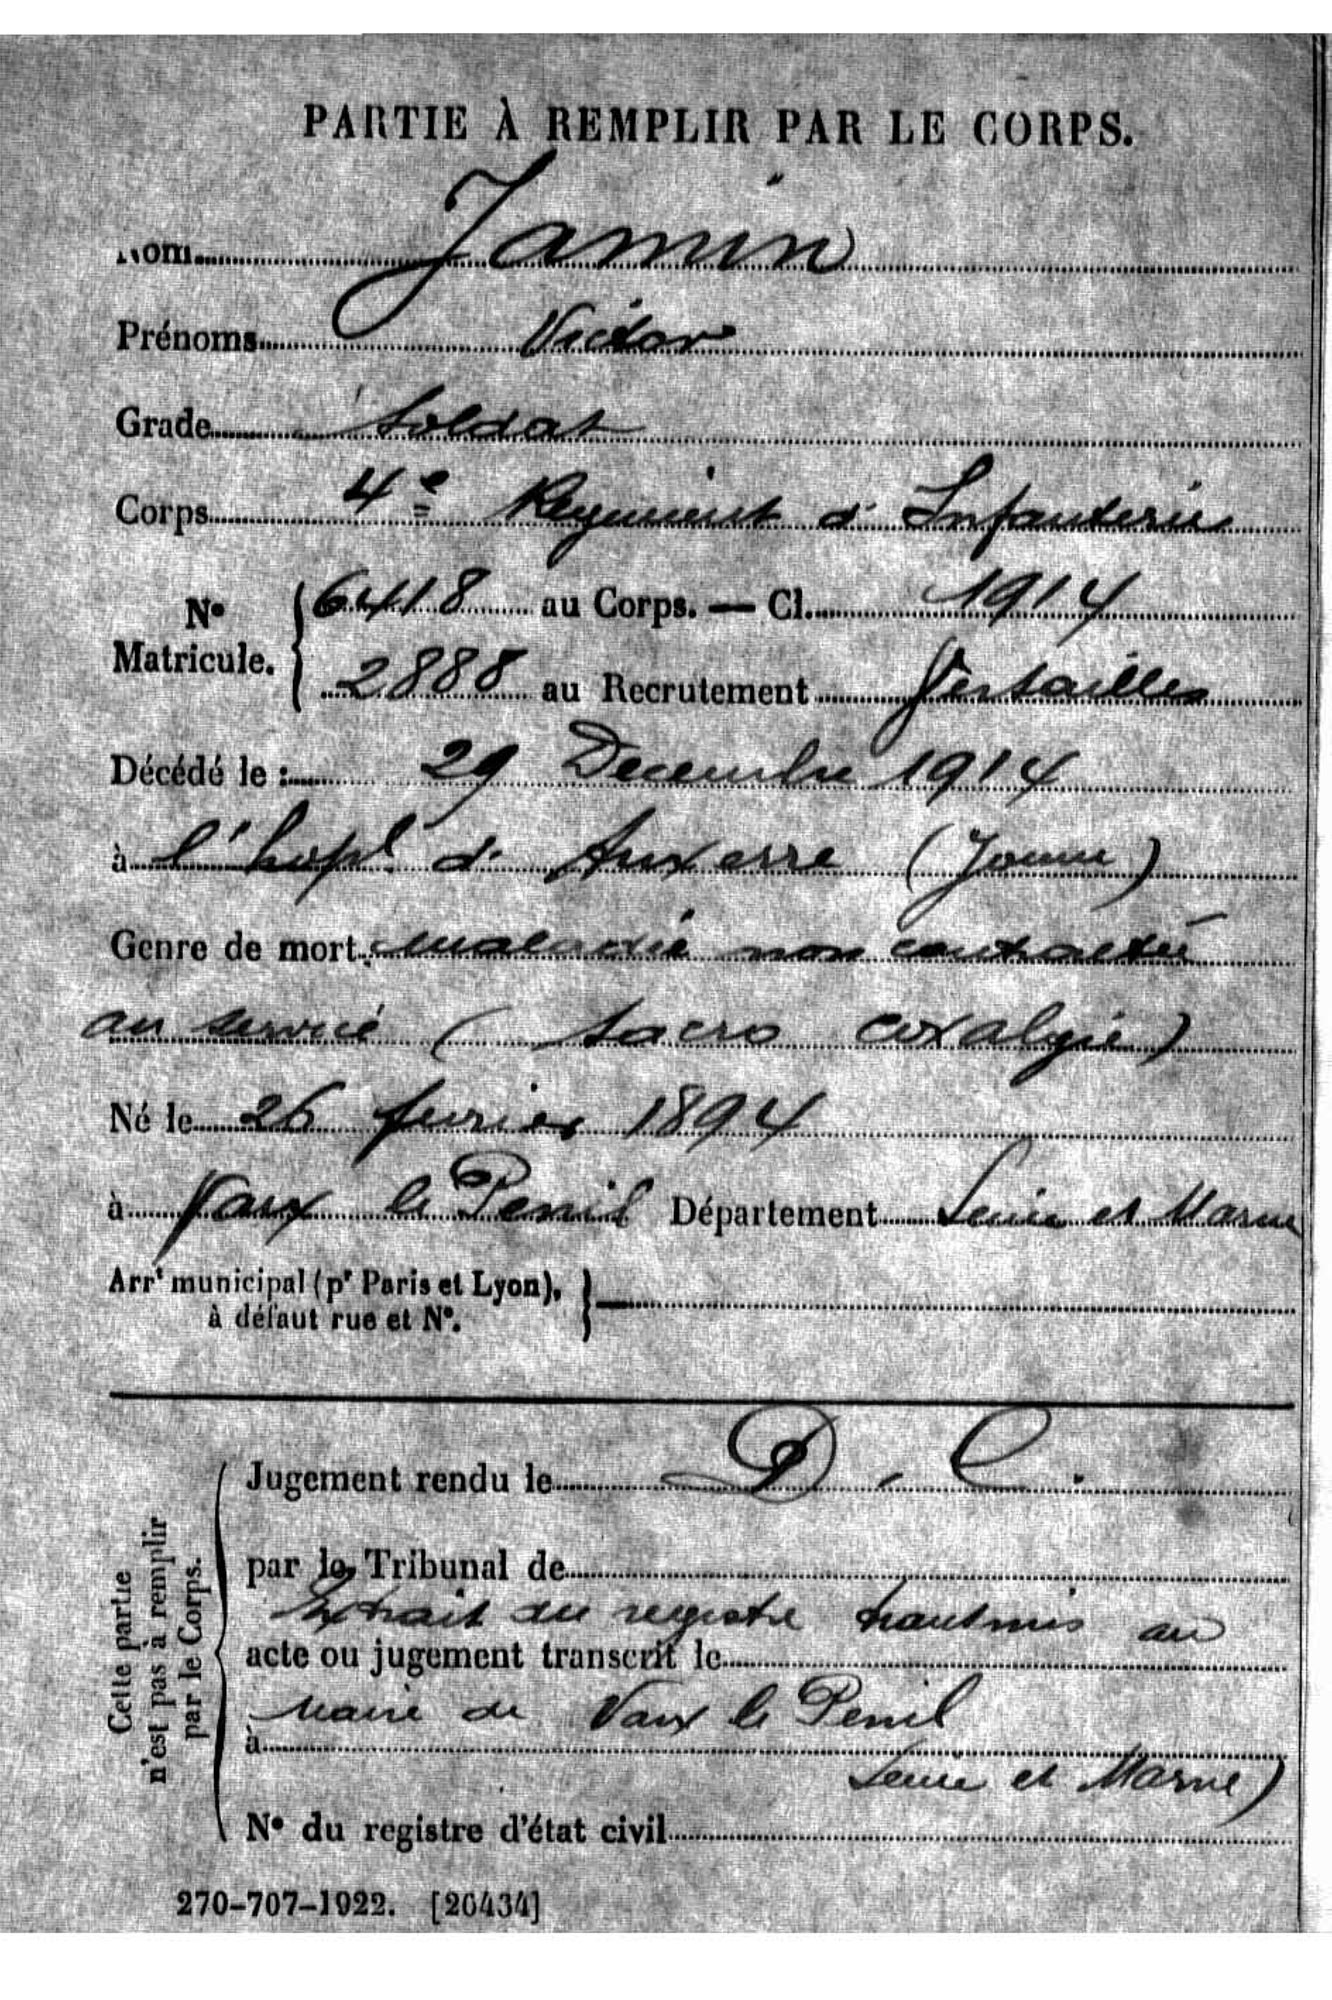 PARTIE À REMPLIR PAR LE CORPS.
Nom Jamin
Prénoms Victor
Grade Soldat
Corps 4e Regiment d' Infanterie
N° Matricule. 6418 au Corps. — Cl. 1914
2888 au Recrutement Versailles
Décédé le : 29 Decembre 1914
à l'hopl d' Auxerre (Yonne)
Genre de mort maladie non contractée
au service ( Sacro coxalgie )
Né le 26 fevrier 1894
à Vaux le Penil Département Seine et Marne
Arrt municipal (pr Paris et Lyon),
à défaut rue et N°.
Cette partie
n'est pas à remplir
par le Corps.
Jugement rendu le D. C.
par le Tribunal de
Extrait du registre transmis au
acte ou jugement transcrit le
Maire de Vaux le Penil
à
Seine et Marne)
N° du registre d'état civil
270-707-1922. [26434]